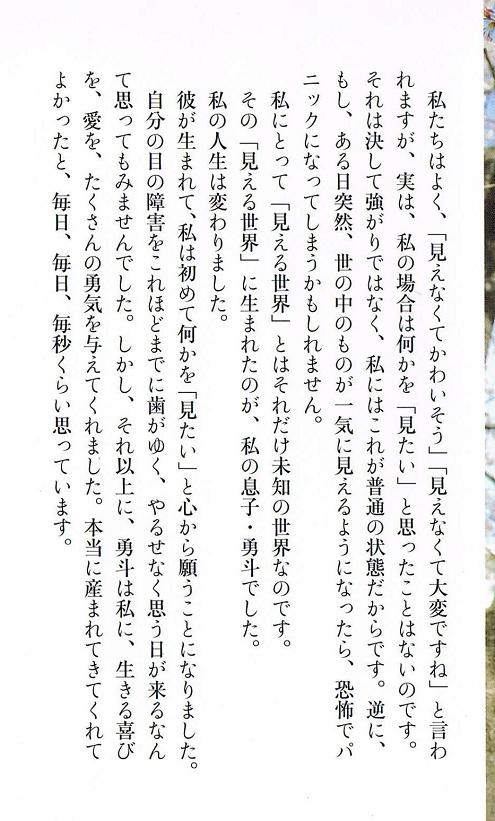 私たちはよく、「見えなくてかわいそう」「見えなくて大変ですね」と言わ
れますが、実は、私の場合は何かを「見たい」と思ったことはないのです。
それは決して強がりではなく、私にはこれが普通の状態だからです。逆に、
もし、ある日突然、世の中のものが一気に見えるようになったら、恐怖でパ
ニックになってしまうかもしれません。
私にとって「見える世界」とはそれだけ未知の世界なのです。
その「見える世界」に生まれたのが、私の息子・勇斗でした。
私の人生は変わりました。
彼が生まれて、私は初めて何かを「見たい」と心から願うことになりました。
自分の目の障害をこれほどまでに歯がゆく、やるせなく思う日が来るなん
て思ってもみませんでした。しかし、それ以上に、勇斗は私に、生きる喜び
を、愛を、たくさんの勇気を与えてくれました。本当に産まれてきてくれて
よかったと、毎日、毎日、毎秒くらい思っています。